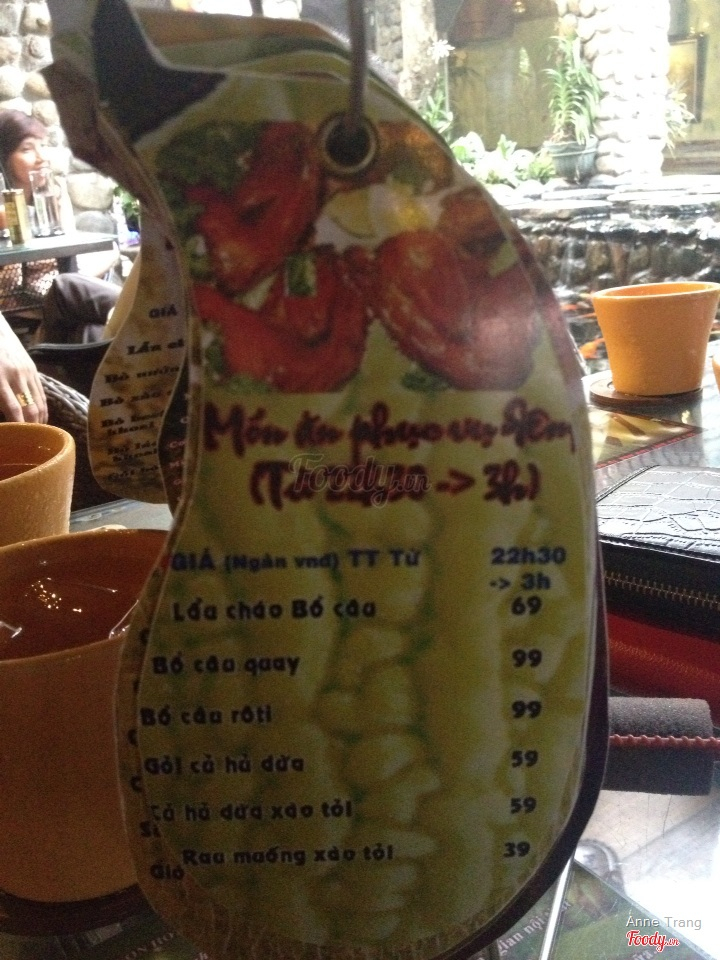 Món ăn phục vụ đêm
(Từ -> 3h)
Foody.vn
GIÁ (Ngàn vnđ) TT Từ 22h30
-> 3h
Lẩu cháo Bồ câu 69
Bồ câu quay 99
Bồ câu rôti 99
Gỏi cả hủ dừa 59
Cả hủ dừa xào tỏi 59
Rau muống xào tỏi 39
GIÁ
Lẩu
Bò
Bò
Bò
Giò
Anne Trang
Foody.vn